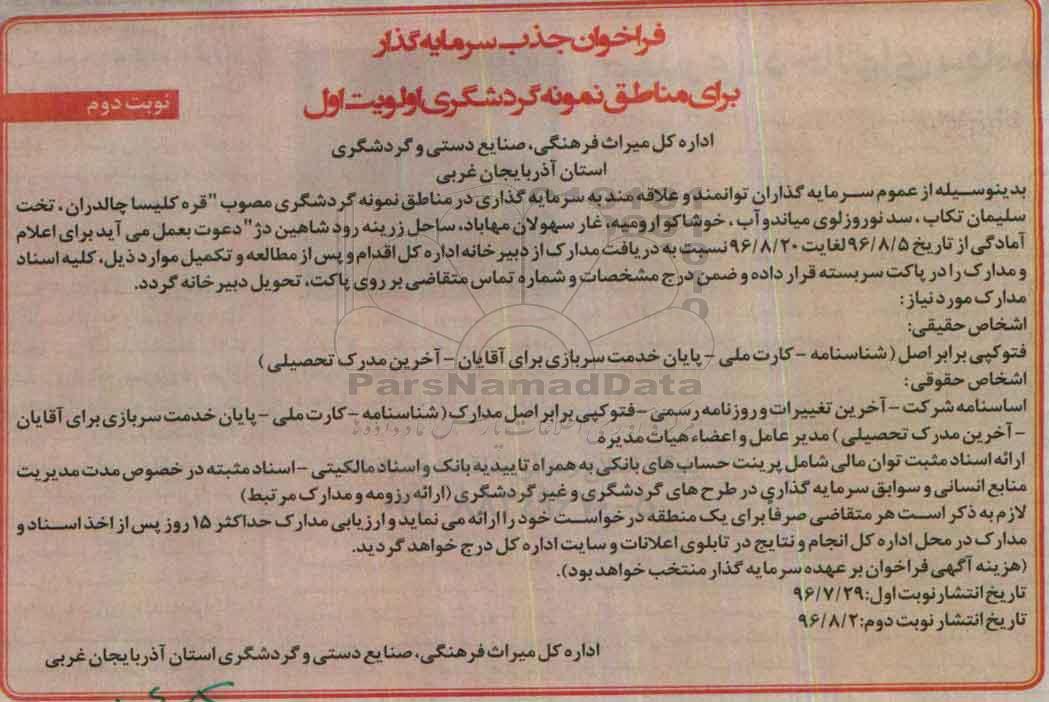 فراخوان جذب سرمایه گذار
برای مناطق نمونه گردشگری اولویت اول
نوبت دوم
اداره کل میراث فرهنگی، صنایع دستی و گردشگری
استان آذربایجان غربی
بدینوسیله از عموم سرمایه گذاران توانمند و علاقه مند به سرمایه گذاری در مناطق نمونه گردشگری مصوب "قره کلیسا چالدران، تخت
سلیمان تکاب، سد نوروزلوی میاندوآب، خوشاکو ارومیه، غار سهولان مهاباد، ساحل زرینه رود شاهین دژ" دعوت بعمل می آید برای اعلام
آمادگی از تاریخ ۹۶/۸/۵ لغایت ۹۶/۸/۲۰ نسبت به دریافت مدارک از دبیرخانه اداره کل اقدام و پس از مطالعه و تکمیل موارد ذیل، کلیه اسناد
و مدارک را در پاکت سربسته قرار داده و ضمن درج مشخصات و شماره تماس متقاضی بر روی پاکت، تحویل دبیرخانه گردد.
مدارک مورد نیاز:
اشخاص حقیقی:
فتوکپی برابر اصل (شناسنامه - کارت ملی - پایان خدمت سربازی برای آقایان - آخرین مدرک تحصیلی)
اشخاص حقوقی:
ParsNamadData
اساسنامه شرکت - آخرین تغییرات و روزنامه رسمی - فتوکپی برابر اصل مدارک (شناسنامه - کارت ملی - پایان خدمت سربازی برای آقایان
- آخرین مدرک تحصیلی) مدیر عامل و اعضاء هیات مدیره
ارائه اسناد مثبت توان مالی شامل پرینت حساب های بانکی به همراه تاییدیه بانک و اسناد مالکیتی - اسناد مثبته در خصوص مدت مدیریت
منابع انسانی و سوابق سرمایه گذاری در طرح های گردشگری و غیر گردشگری (ارائه رزومه و مدارک مرتبط)
لازم به ذکر است هر متقاضی صرفاً برای یک منطقه درخواست خود را ارائه می نماید و ارزیابی مدارک حداکثر ۱۵ روز پس از اخذ اسناد و
مدارک در محل اداره کل انجام و نتایج در تابلوی اعلانات و سایت اداره کل درج خواهد گردید.
(هزینه آگهی فراخوان بر عهده سرمایه گذار منتخب خواهد بود).
تاریخ انتشار نوبت اول: ۹۶/۷/۲۹
تاریخ انتشار نوبت دوم: ۹۶/۸/۲
اداره کل میراث فرهنگی، صنایع دستی و گردشگری استان آذربایجان غربی